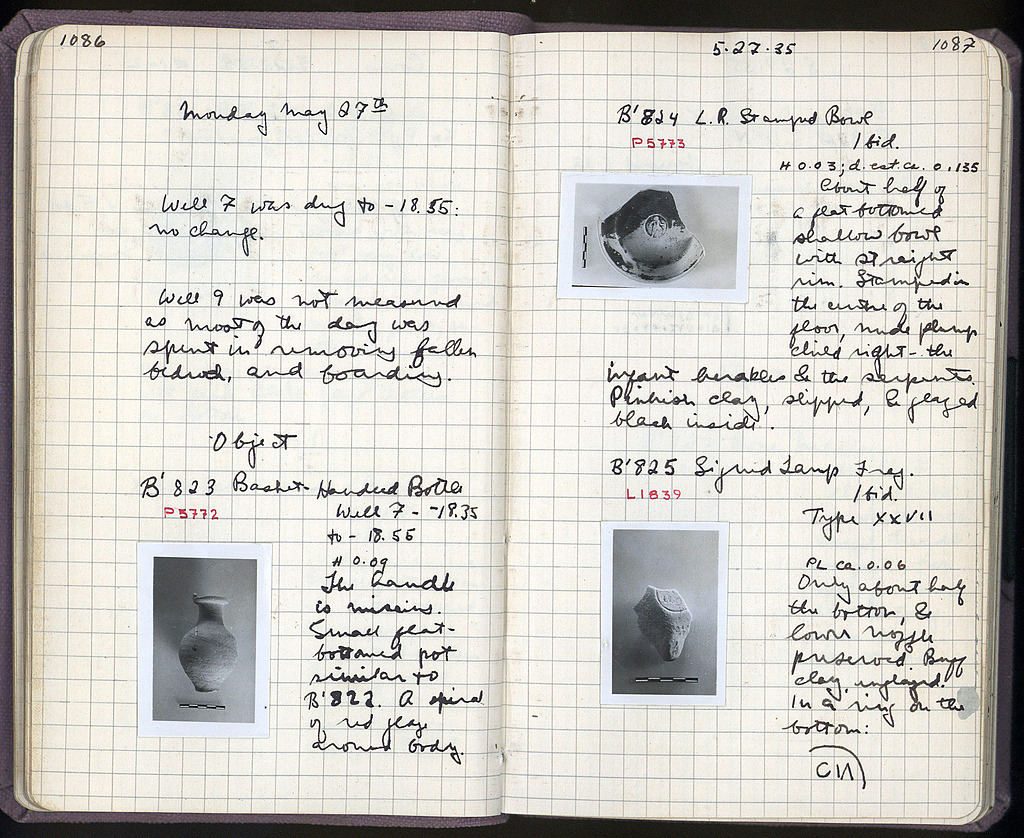 1086
Monday May 27th
Well 7 was dug to -18.55:
no change.
Well 9 was not measured
as most of the day was
spent in removing fallen
bedrock, and boarding.
Object
B'823 Basket-Handled Bottle
P5772
Well 7 - -18.35
to - 18.55
H 0.09
The handle
is missing.
Small flat-
bottomed pot
similar to
B'822. A spiral
of red glaze
around body.
5·27·35
1087
B'824 L.R. Stamped Bowl
P5773
Ibid.
H 0.03; d. est. ca. 0.135
About half of
a flat bottomed
shallow bowl
with straight
rim. Stamped in
the centre of the
floor, nude plump
child right - the
infant herakles & the serpents.
Pinkish clay, slipped, & glazed
black inside.
B'825 Signed Lamp Frag.
L1839
Ibid.
Type XXVII
PL ca. 0.06
Only about half
the bottom, &
lower nozzle
preserved. Buff
clay, unglazed.
In a ring on the
bottom: